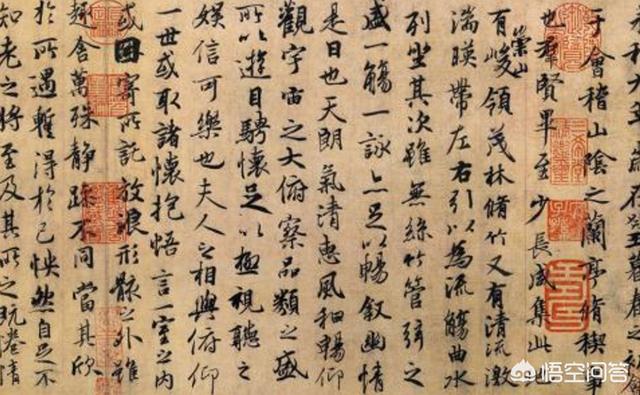 歲在癸丑暮春之初
于會稽山陰之蘭亭脩稧事
也羣賢畢至少長咸集此地
有崇山峻領茂林脩竹又有清流激
湍暎帶左右引以為流觴曲水
列坐其次雖無絲竹管弦之
盛一觴一詠亦足以暢敘幽情
是日也天朗氣清惠風和暢仰
觀宇宙之大俯察品類之盛
所以遊目騁懷足以極視聽之
娛信可樂也夫人之相與俯仰
一世或取諸懷抱悟言一室之內
或因寄所託放浪形骸之外雖
趣舍萬殊靜躁不同當其欣
於所遇蹔得於己怏然自足不
知老之將至及其所之既惓情
悟空问答